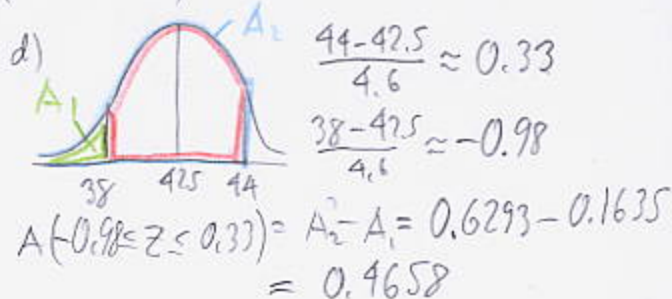 d)
A₂
A₁
38 42.5 44
44-42.5 / 4.6 ≈ 0.33
38-42.5 / 4.6 ≈ -0.98
A(-0.98≤Z≤0.33) = A₂-A₁ = 0.6293-0.1635
= 0.4658